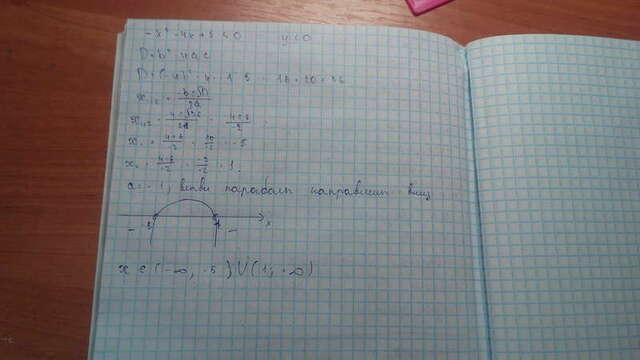 -x² - 4x + 5 < 0 y < 0
D = b² - 4ac
D = (-4)² - 4 · 1 · 5 = 16 + 20 = 36
x₁,₂ = -b ± √D / 2a
x₁,₂ = 4 ± √36 / = 4 ± 6 / 2
x₁ = 4 + 6 / -2 = 10 / -2 = -5
x₂ = 4 - 6 / -2 = -2 / -2 = 1.
a = -1, ветви параболы направлены вниз
-5 1 x
- -
x ∈ (-∞, -5) ∪ (1; +∞)